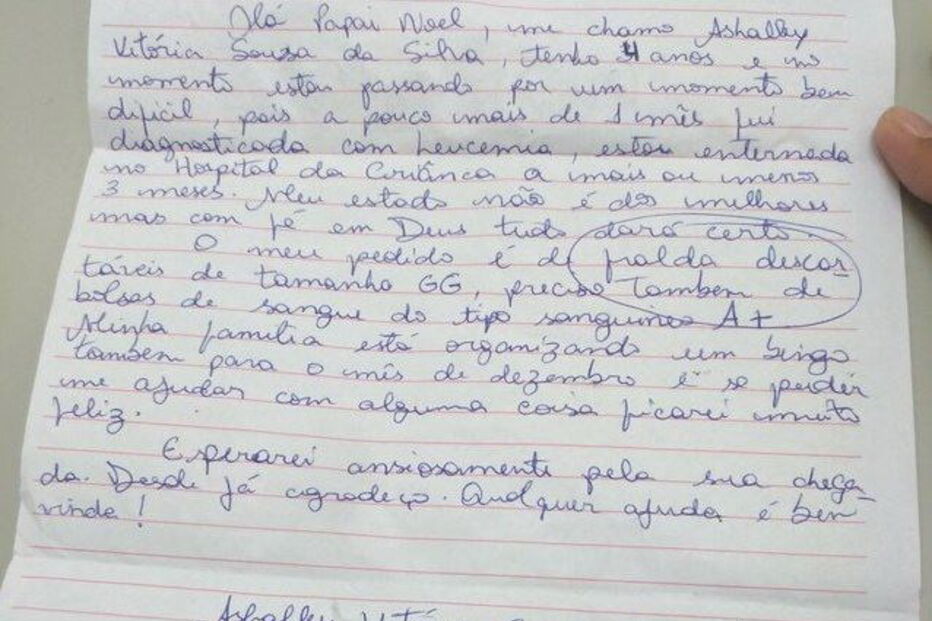 Olá Papai Noel, me chamo Ashalley
Vitória Sousa da Silva, tenho 4 anos e no
momento estou passando por um momento bem
dificil, pois a pouco mais de 1 mês fui
diagnosticada com leucemia, estou enternada
no Hospital da Criânca a mais ou menos
3 meses. Meu estado não é dos melhores
mas com fé em Deus tudo dará certo.
O meu pedido é de fralda descar
táveis de tamanho GG, preciso tambem de
bolsas de sangue do tipo sanguineo A+
Minha família está organizando um bingo
tambem para o mês de dezembro e se puder
me ajudar com alguma coisa ficarei muito
feliz.
Esperarei ansiosamente pela sua chega
da. Desde já agradeço. Qualquer ajuda é bem
vinda!